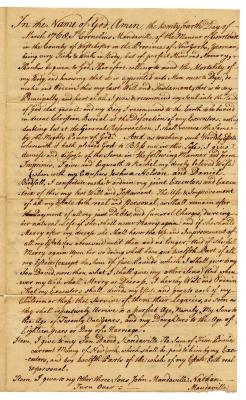 In the Name of God, Amen, the twenty fourth Day of
March 1768, I Cornelius Mandeville, of the Mannor of Cortlandt
in the County of Westchester in the Province of New York, yeoman,
being very Sick & Weak in Body, but of perfect Mind and Memory,
Thanks is given to God, Therefore calling to mind the Mortality of
my Body and knowing that it is appointed unto Men once to Dye, do
make and Ordain this my last Will and Testament, that is to say
Principally, and first of all I Give & recommend my Soul into the Hands
of God that gave it: and my Body I recommend to the Earth, to be buried
in decent Christian Burial at the Discretion of my Executors, nothing
doubting but at the General Resurrection I shall receive the Same
by the Mighty Power of God. And as touching such Worldly Estate
wherewith it hath pleased God to Bless me in this Life, I give
demise and dispose of the Same in the Following Manner and form
Imprimis, I give and bequeath to Rachel my dearly beloved Wife
whom with my Joshua Nelson, and Daniel
I likewise constitute make & ordain my joint Executors and
of this my last Will and Testament. The Use & Improvement
of all my Estate both real and Personal, after
Payment of all my just Debts and funeral Charges, during
her natural Life if she shall never Marry again: and if she should
Marry after my Decease she shall have the Use and Improvement of
all my Estate until then and no longer; that if she shall
Marry again
my Estate except the Sum of five Pounds which I Shall give my
Son David, more than what I shall give my other Sons: And when
ever my Wife shall Marry or Decease, I hereby Will and Ordain
that my Executors shall divide and grant each of my
Children or those that Survive of them their Legacies, as soon as
they shall arrive to a perfect Age, Namely, My Sons to
the Age of Twenty One Years, and my Daughters to the Age of
Eighteen Years or Day of Marriage.
Item. I give to my Son David Mandeville The Sum of Five Pounds
current Money of New York, which shall be paid to him by my Exe-
cutors, and Part of the whole of my Estate both real
& personal.
Item. I give to my Other three Sons John Mandeville,
Turn Over Mandeville